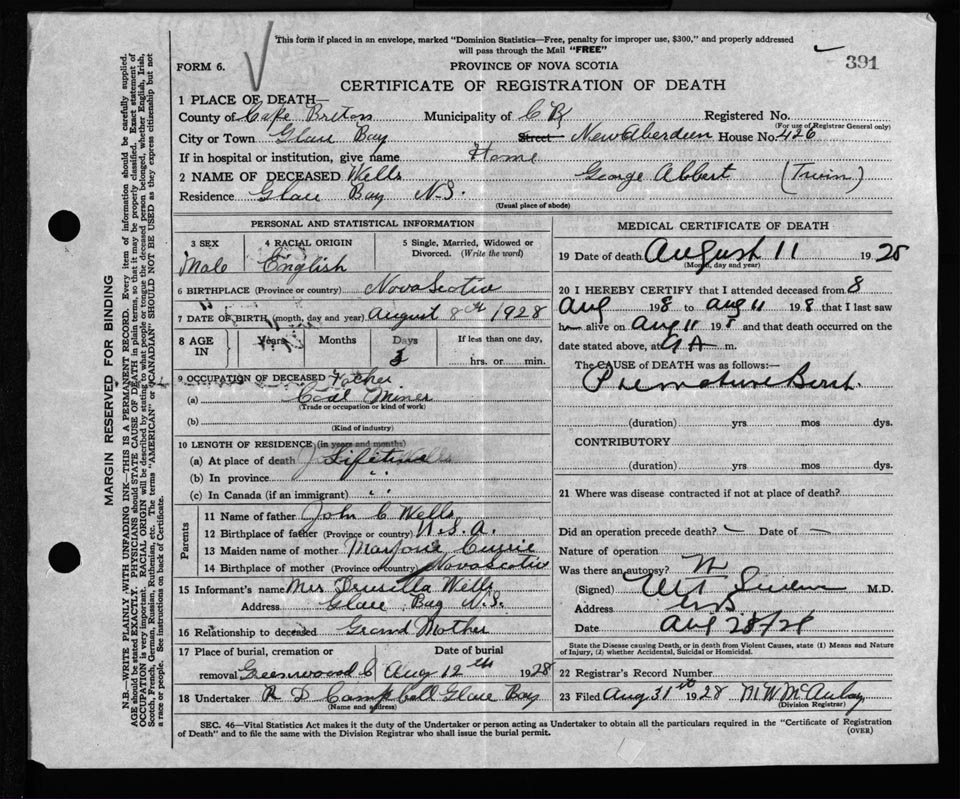 This form if placed in an envelope, marked "Dominion Statistics—Free, penalty for improper use, $300," and properly addressed
will pass through the Mail "FREE"
391
FORM 6.
PROVINCE OF NOVA SCOTIA
CERTIFICATE OF REGISTRATION OF DEATH
1 PLACE OF DEATH—
County of Cape Breton Municipality of C B Registered No.
(For use of Registrar General only)
City or Town Glace Bay Street New Aberdeen House No. 426
If in hospital or institution, give name Home
2 NAME OF DECEASED Wells George Abbert (Twin)
Residence Glace Bay N.S.
(Usual place of abode)
PERSONAL AND STATISTICAL INFORMATION
3 SEX 4 RACIAL ORIGIN 5 Single, Married, Widowed or Divorced. (Write the word)
Male English
6 BIRTHPLACE (Province or country) Nova Scotia
7 DATE OF BIRTH (month, day and year) August 8th 1928
8 AGE IN Years Months Days If less than one day,
3 hrs. or min.
9 OCCUPATION OF DECEASED Father
(a) Coal Miner
(Trade or occupation or kind of work)
(b)
(Kind of industry)
10 LENGTH OF RESIDENCE (in years and months)
(a) At place of death Lifetime
(b) In province " "
(c) In Canada (if an immigrant) " "
Parents
11 Name of father John C Wells
12 Birthplace of father (Province or country) U.S.A.
13 Maiden name of mother Marjorie Currie
14 Birthplace of mother (Province or country) Nova Scotia
15 Informant's name Mrs Drusilla Wells
Address Glace Bay N.S.
16 Relationship to deceased Grand Mother
17 Place of burial, cremation or Date of burial
removal Greenwood C Aug 12th 1928
18 Undertaker R D Campbell Glace Bay
(Name and address)
MEDICAL CERTIFICATE OF DEATH
19 Date of death August 11 1928
(Month, day and year)
20 I HEREBY CERTIFY that I attended deceased from 8
Aug 1928 to Aug 11 1928 that I last saw
him alive on Aug 11 1928 and that death occurred on the
date stated above, at 9 A m.
The CAUSE OF DEATH was as follows:—
Premature Birth
(duration) yrs mos dys.
CONTRIBUTORY
(duration) yrs. mos. dys.
21 Where was disease contracted if not at place of death?
Did an operation precede death? — Date of —
Nature of operation
Was there an autopsy? N
(Signed) M.D.
Address G B
Date Aug 28/28
State the Disease causing Death, or in death from Violent Causes, state (1) Means and Nature
of Injury, (2) whether Accidental, Suicidal or Homicidal.
22 Registrar's Record Number
23 Filed Aug 31st 1928 M W McAulay
(Division Registrar)
SEC. 46—Vital Statistics Act makes it the duty of the Undertaker or person acting as Undertaker to obtain all the particulars required in the "Certificate of Registration
of Death" and to file the same with the Division Registrar who shall issue the burial permit.
(OVER)
MARGIN RESERVED FOR BINDING
N.B—WRITE PLAINLY WITH UNFADING INK—THIS IS A PERMANENT RECORD. Every item of information should be carefully supplied.
AGE should be stated EXACTLY. PHYSICIANS should STATE CAUSE OF DEATH in plain terms, so that it may be properly classified. Exact statement of
OCCUPATION is very important. RACIAL ORIGIN will be described by stating to what people or tongue the deceased person belonged, whether English, Irish,
Scotch, French, German, Russian, Ruthenian, etc. The terms "AMERICAN" or "CANADIAN" SHOULD NOT BE USED as they express citizenship but not
a race or people. See instructions on back of Certificate.